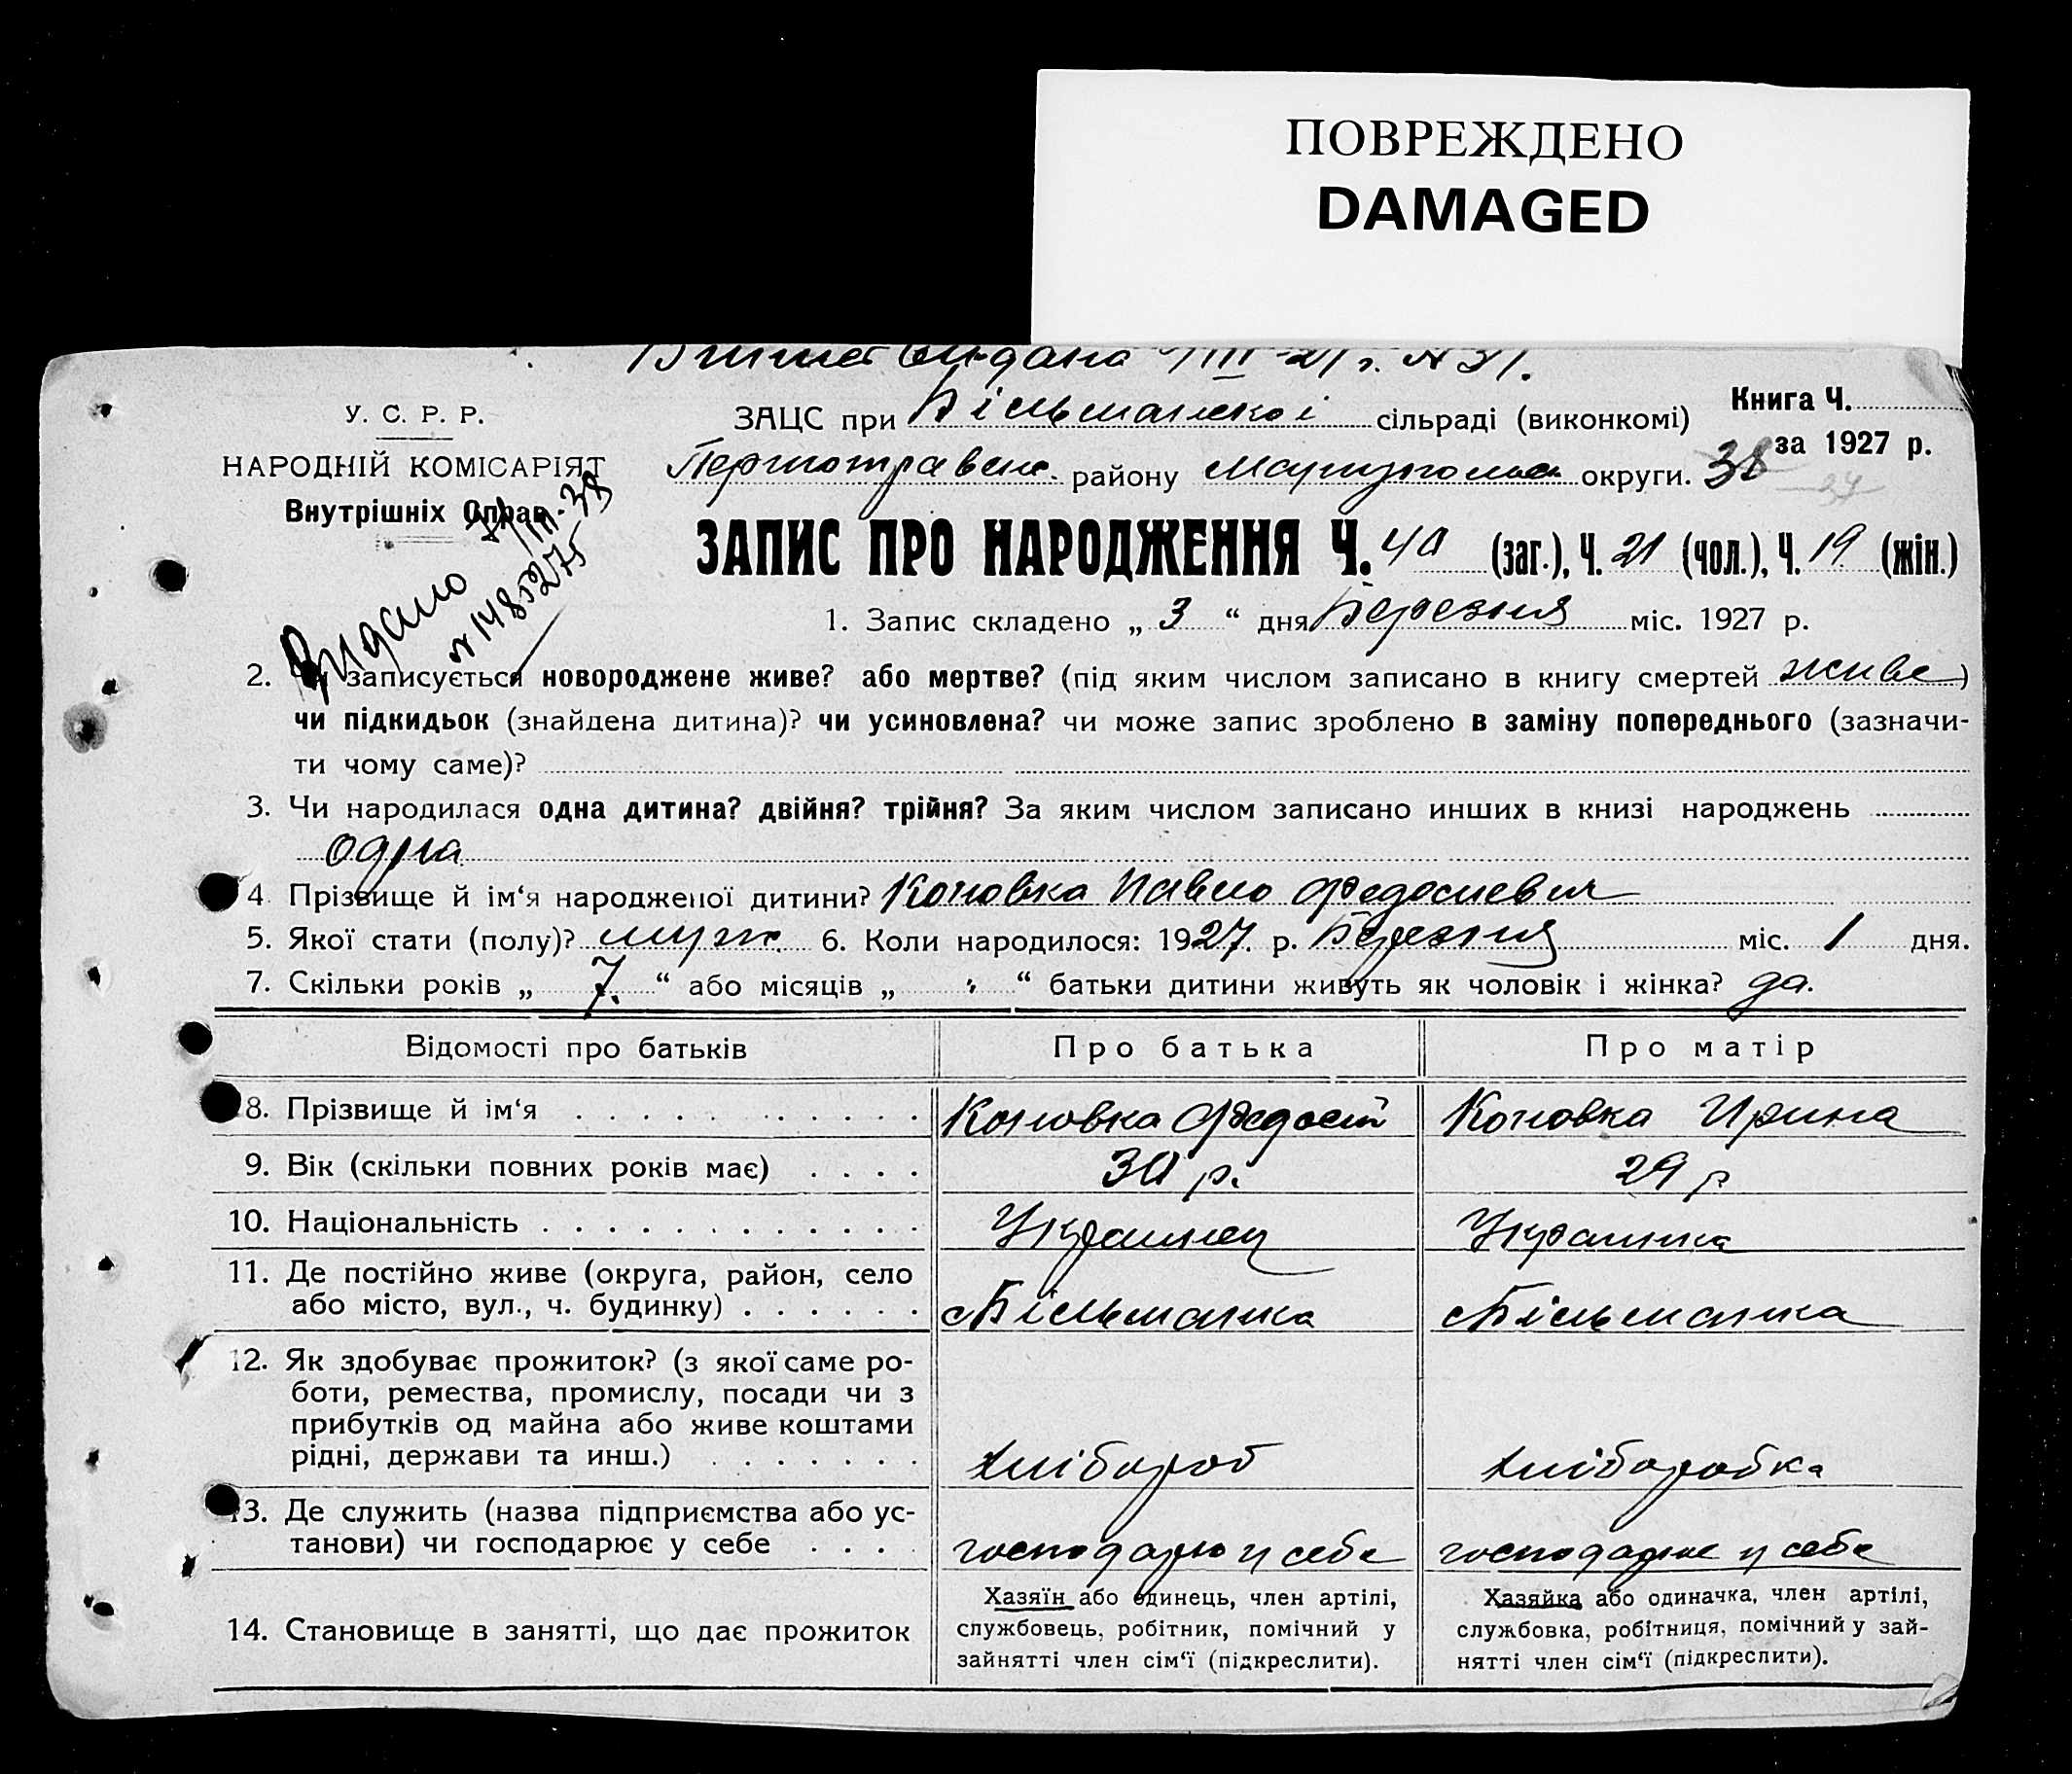 ПОВРЕЖДЕНО
DAMAGED
У. С. Р. Р.
НАРОДНІЙ КОМІСАРІЯТ
Внутрішніх Справ
Видано
ЗАЦС при Більманскоі сільраді (виконкомі)
Книга Ч.
за 1927 р.
Першотравен. району округи. 38
ЗАПИС ПРО НАРОДЖЕННЯ Ч. 40 (заг.), Ч. 21 (чол.), Ч. 19 (жін.)
1. Запис складено „ 3 “ дня Березня міс. 1927 р.
2. Чи записується новороджене живе? або мертве? (під яким числом записано в книгу смертей живе)
чи підкидьок (знайдена дитина)? чи усиновлена? чи може запис зроблено в заміну попереднього (зазначи-
ти чому саме)?
3. Чи народилася одна дитина? двійня? трійня? За яким числом записано инших в книзі народжень
одна
4. Прізвище й ім‘я народженої дитини? Коновка Павло Федосиевич
5. Якої стати (полу)? муж. 6. Коли народилося: 1927. р. Березня міс. 1 дня.
7. Скільки років „ 7. “ або місяців „ “ батьки дитини живуть як чоловік і жінка? да.
Відомості про батьків
Про батька
Про матір
8. Прізвище й ім‘я
Коновка Федосій
Коновка Ирина
9. Вік (скільки повних років має)
30 р.
29 р
10. Національність
Украинец
Украинка
11. Де постійно живе (округа, район, село
або місто, вул., ч. будинку)
с Більманка
с Більманка
12. Як здобуває прожиток? (з якої саме ро-
боти, ремества, промислу, посади чи з
прибутків од майна або живе коштами
рідні, держави та инш.)
хлібороб
хліборобка
13. Де служить (назва підприємства або ус-
танови) чи господарює у себе
господарю у себе
господарює у себе
14. Становище в занятті, що дає прожиток
Хазяїн або одинець, член артілі,
службовець, робітник, помічний у
зайнятті член сім‘ї (підкреслити).
Хазяйка або одиначка, член артілі,
службовка, робітниця, помічний у зай-
нятті член сім‘ї (підкреслити).